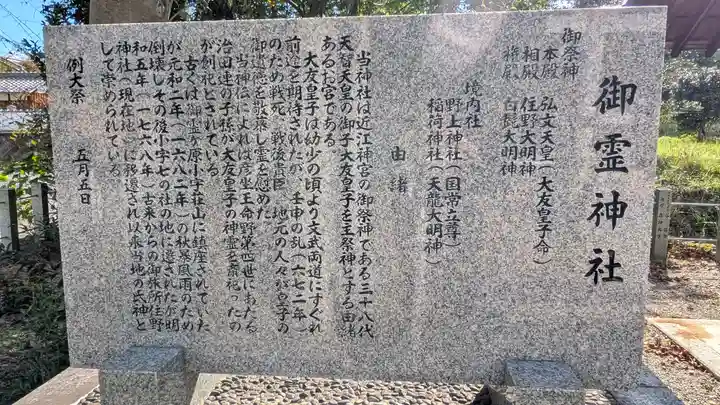 御霊神社
御祭神
本殿 弘文天皇(大友皇子命)
相殿 住野大明神
指殿 白髭大明神
境内社
野上神社(国常立尊)
稲荷神社(天龍大明神)
由緒
当神社は近江神宮の御祭神である三十八代
天智天皇の御子大友皇子を主祭神とする由緒
あるお宮である。
大友皇子は幼少の頃より文武両道にすぐれ
前途を期待されたが、壬申の乱(六七二年)
のため戦死、戦後旧臣、地元の人々が皇子の
御遺徳を敬慕し霊を慰めた。
当神伝によれば彦坐王命野第四世にあたる
治田連の子孫が大友皇子の神霊を斎祀ったの
が創祀とされている。
古くは御霊ケ原小字荘山に鎮座されていた
が元和二年(一六八二年)の秋暴風雨のため
倒壊しその後小字七の社の地に造されたが明
和五年(一七六八年)古来からの御旅所住野
神社(現在地)に移遷され以来当地の氏神と
して崇められている。
例大祭 五月五日